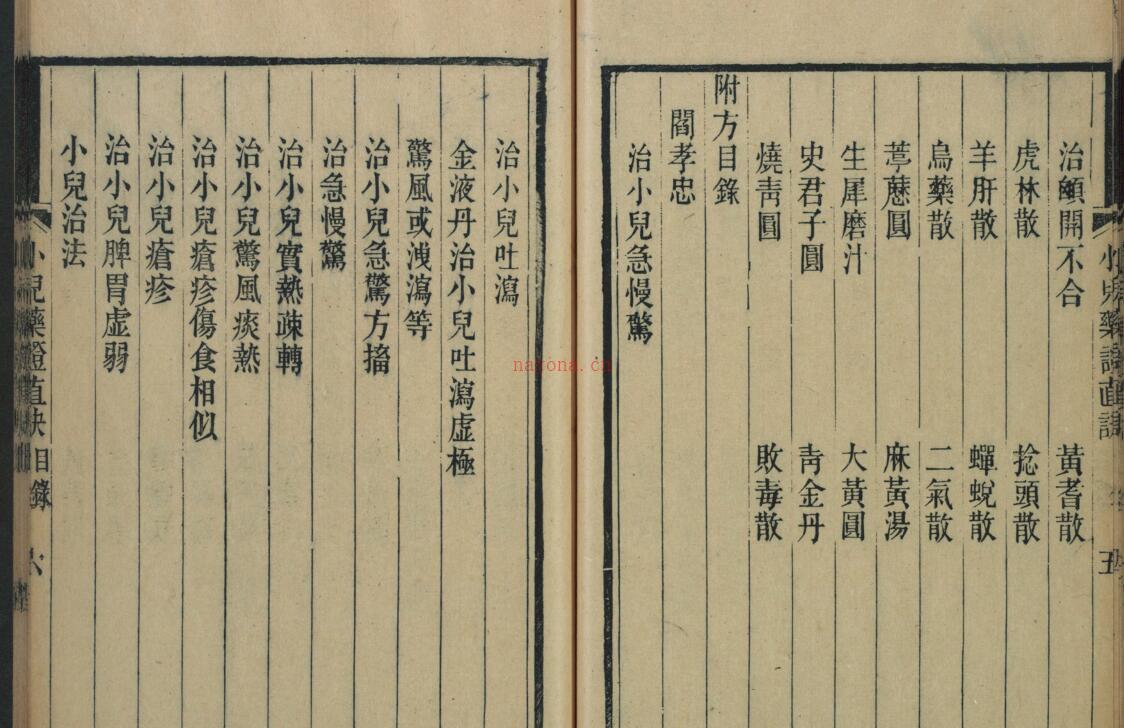 治顖開不合 黃耆散
虎林散 捻頭散
羊肝散 蟬蛻散
烏藥散 二氣散
蓖䓤圓 麻黃湯
生犀磨汁 大黃圓
史君子圓 靑金丹
燒靑圓 敗毒散
附方目錄
閻孝忠
治小兒急慢驚
治小兒吐瀉
金液丹治小兒吐瀉虛極
驚風或洩瀉等
治小兒急驚方搐
治急慢驚
治小兒實熱疎轉
治小兒驚風痰熱
治小兒瘡疹傷食相似
治小兒瘡疹
治小兒脾胃虛弱
小兒治法
小兒藥證直訣目錄 六
nayona.cn